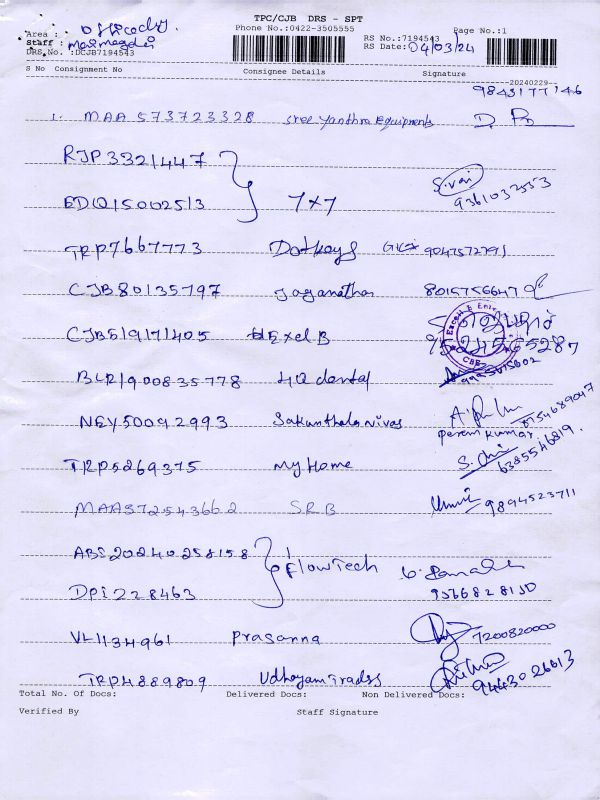 TPC/CJB DRS - SPT
Area :
Phone No.:0422-3505555
Page No.:1
Staff :
RS No.:7194543
DRS No.:DCJB7194543
RS Date: 04/03/24
S No Consignment No Consignee Details Signature
20240229
9843177146
1. MAA 573723328 Sree Yanthra Equipments
RJP3321447
EDQ15002513 7x7
9361032553
TRP7667773 9047572791
CJB80135797 Jaganathan 8015756647
CJB519171405 Exel B
9524565287
BLR1900835778 HQ dental
NEY50092993 Sakunthala nivas 8754689047
prem kumar
TRP5269375 My Home 6385546819.
MAA372543662 SRB 9894523711
ABS20240258158
Flowtech
DPI228463 9566828130
VL1134961 Prasanna 7200820000
TRP4889809 Udhayam Traders 9443026613
Total No. Of Docs: Delivered Docs: Non Delivered Docs:
Verified By Staff Signature